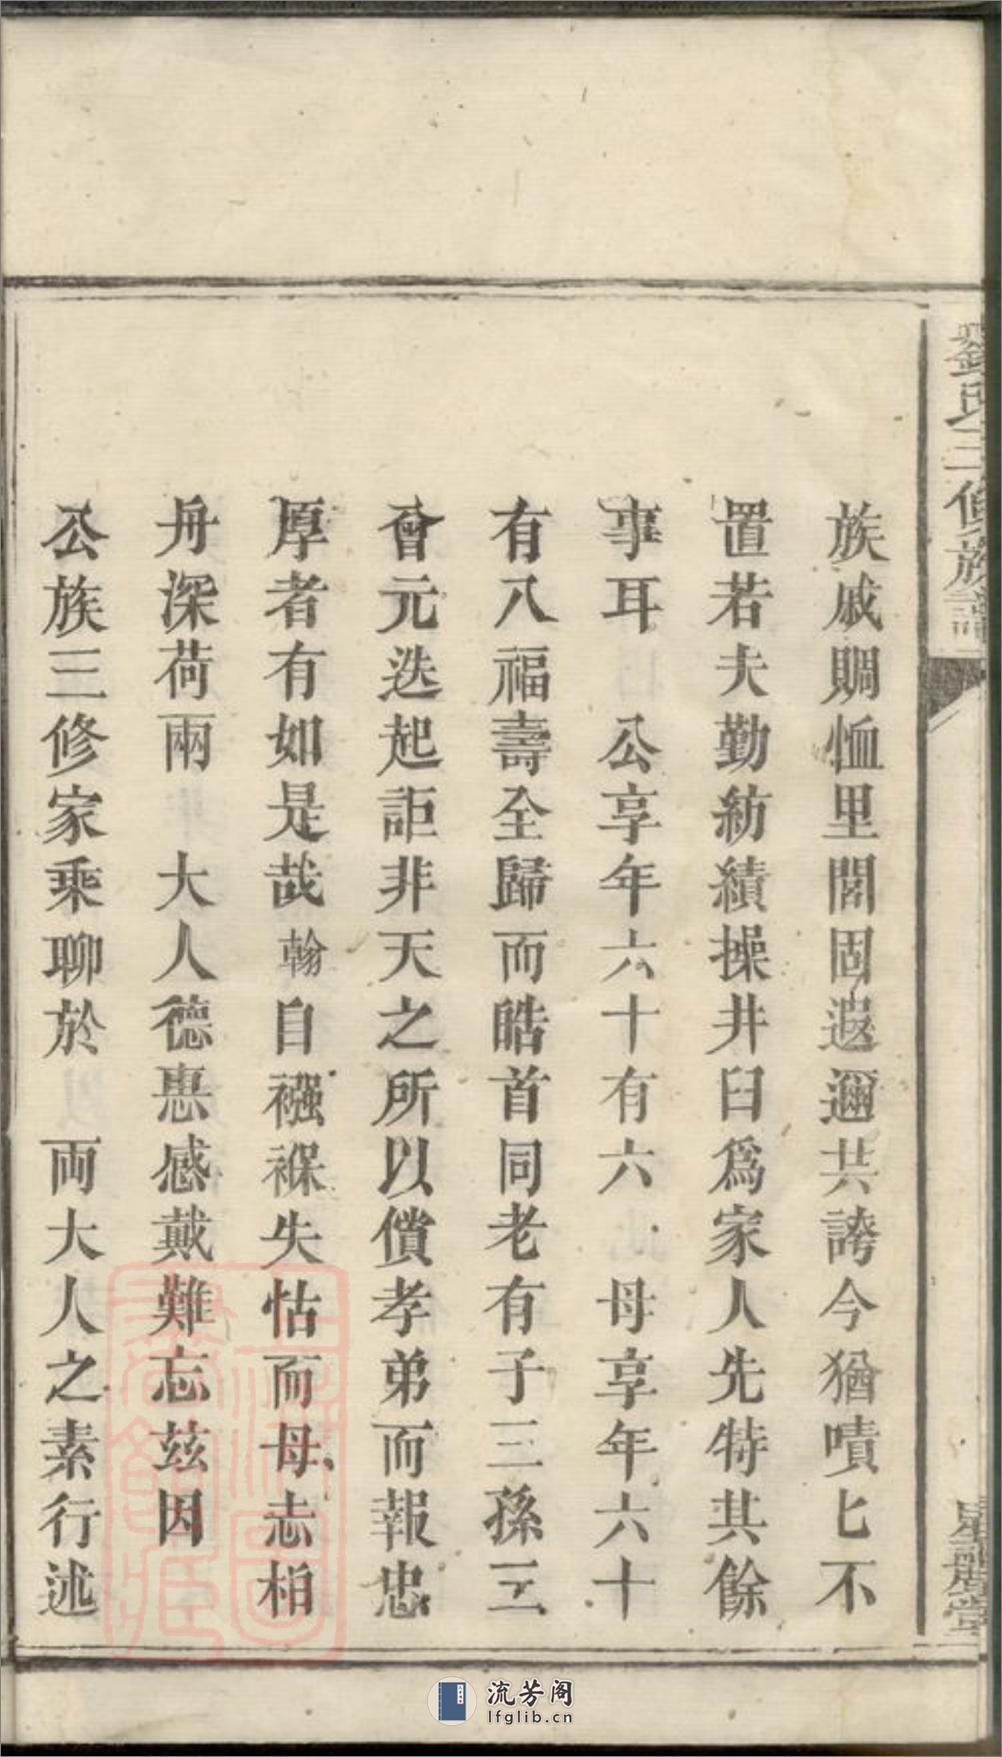 族戚賙恤里閭固遐邇共誇今猶嘖匕不
置若夫勤紡績操井臼爲家人先特其餘
事耳　公享年六十有六　母享年六十
有八福壽全歸而皓首同老有子三孫三
曾元迭起詎非天之所以償孝弟而報忠
厚者有如是哉翰自襁褓失怙而母志柏
舟深荷兩　大人德惠感戴難忘茲因
公族三修家乘聊於　兩大人之素行述
氏三修族譜
堂
流芳阁
lfglib.cn